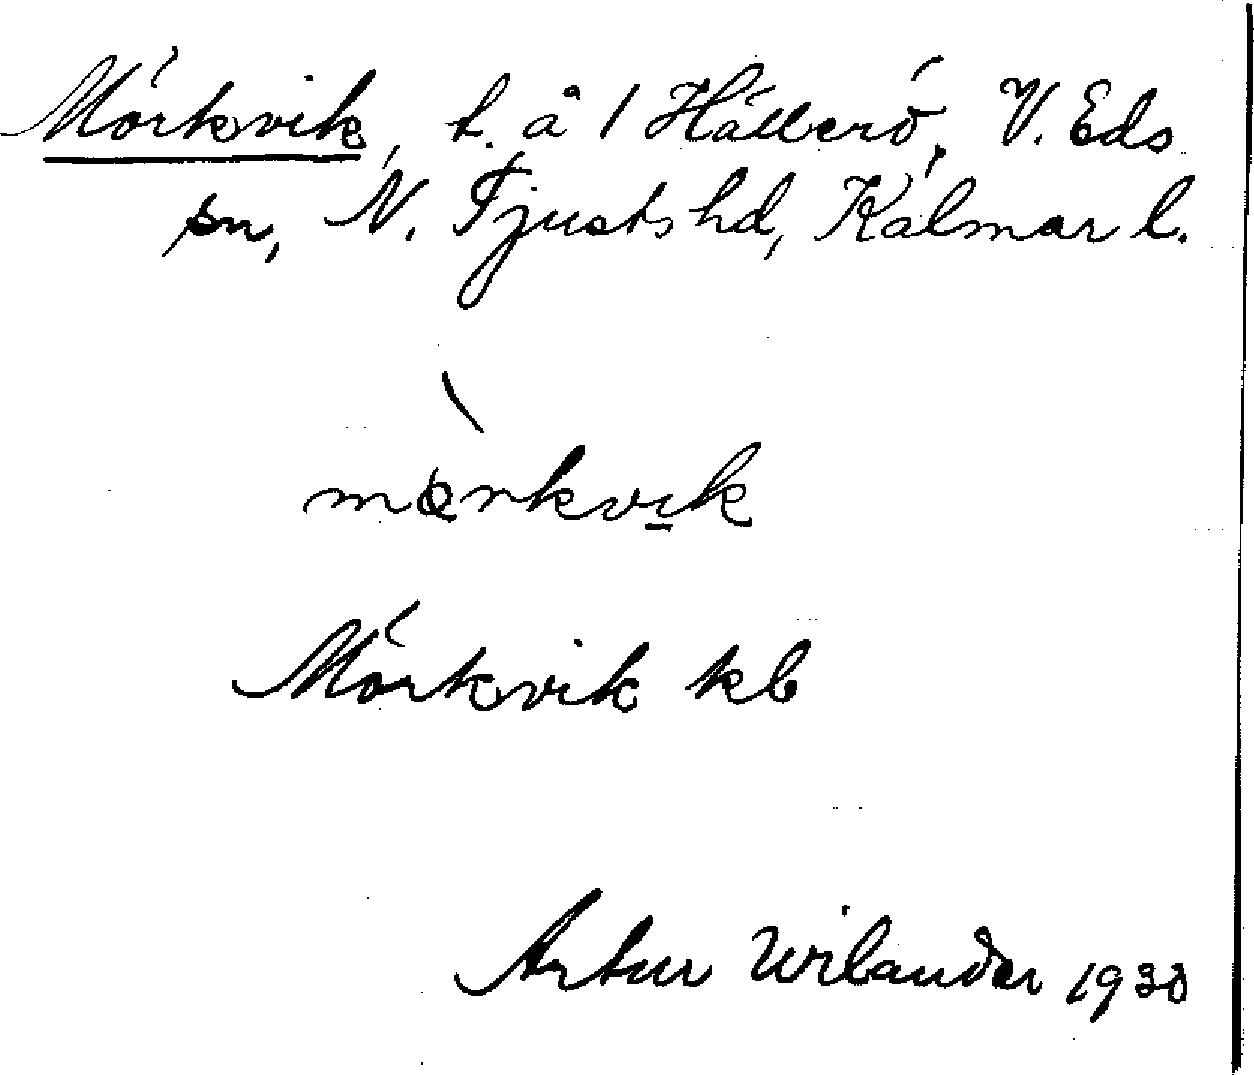 Mörkvik, t. å 1 Hällerö, V. Eds
sn, N. Tjusts hd, Kalmar l.
mörkvik
Mörkvik kb
Artur Wilander 1930